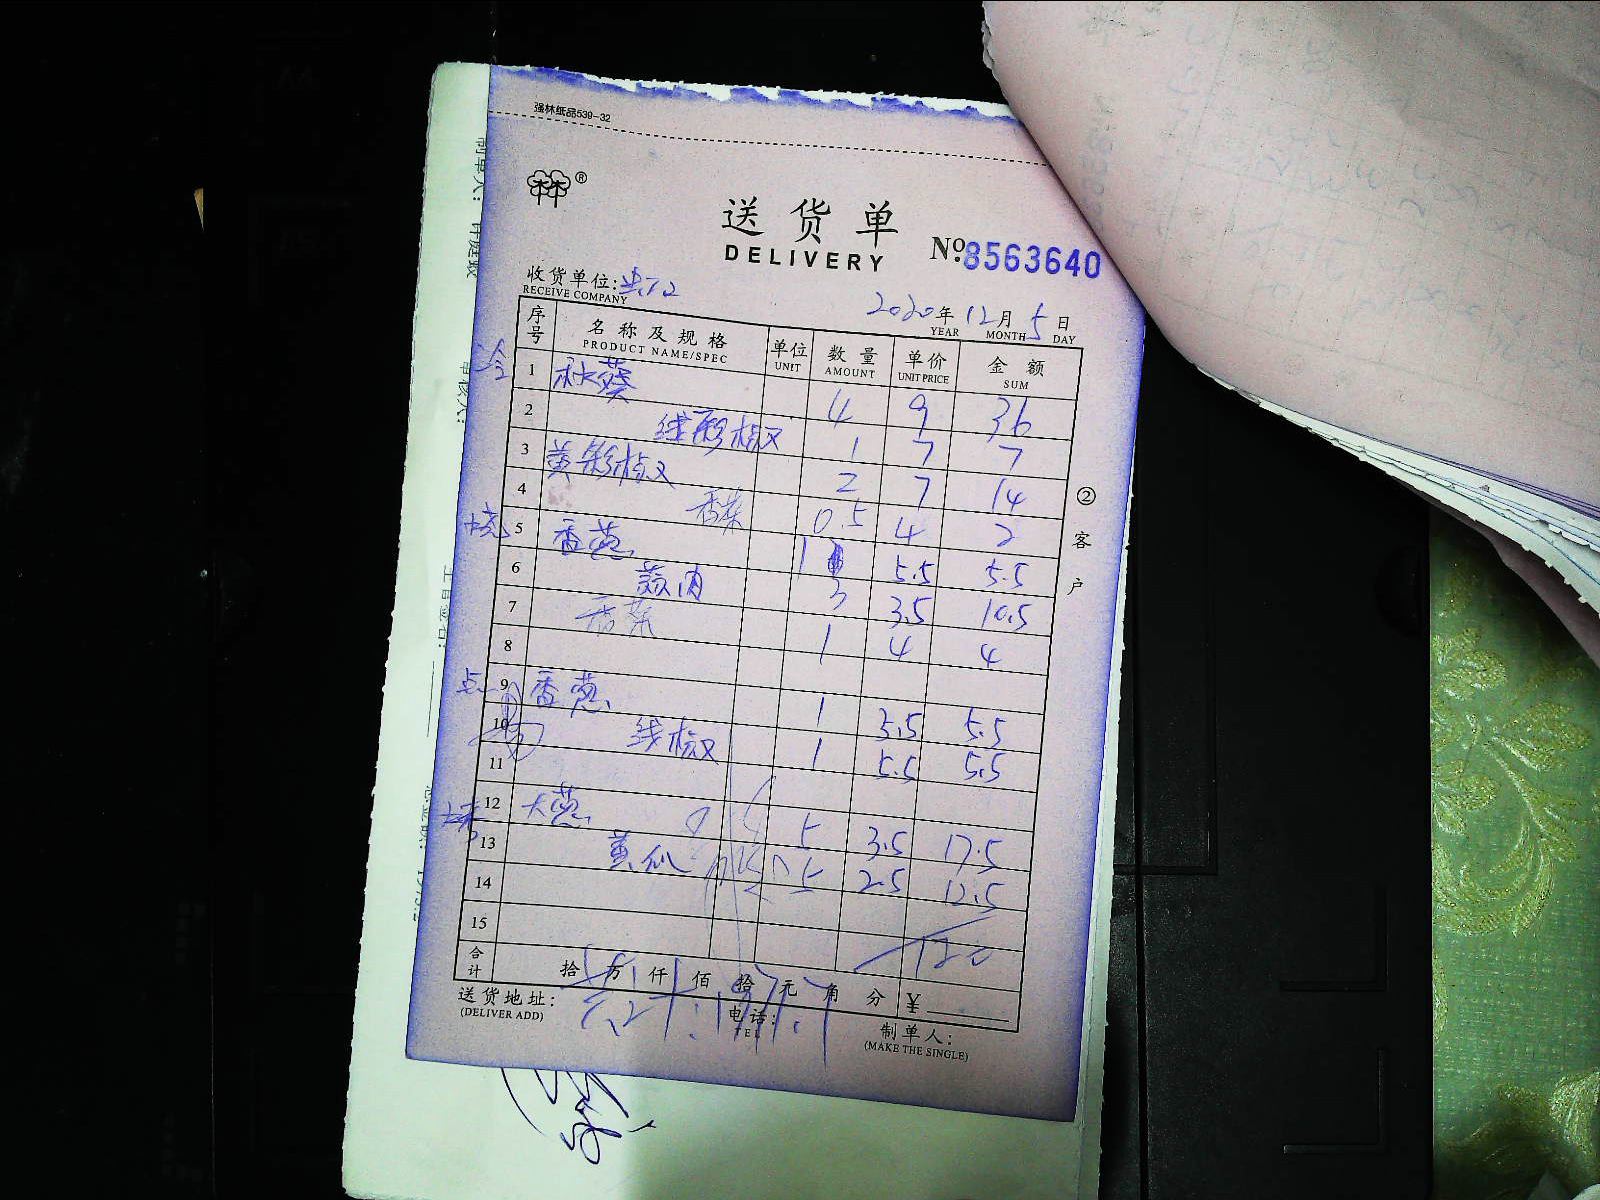 强林纸品539-32
®
送货单
DELIVERY
№:8563640
收货单位:
RECEIVE COMPANY
2020年12月5日
YEAR MONTH DAY
序号 名称及规格 单位 数量 单价 金额
PRODUCT NAME/SPEC UNIT AMOUNT UNIT PRICE SUM
1 秋葵 4 9 36
2 红彩椒 1 7 7
3 黄彩椒 2 7 14
4 香菜 0.5 4 2
烧 5 香葱 1 5.5 5.5
6 蒜肉 3 3.5 10.5
7 香菜 1 4 4
8
点 9 香葱 1 5.5 5.5
10 线椒 1 5.5 5.5
11
12 大葱 5 3.5 17.5
13 黄瓜 5 2.5 12.5
14
15 120
合计 拾 万 仟 佰 拾 元 角 分 ¥
送货地址:
(DELIVER ADD)
电话:
TEL
制单人:
(MAKE THE SINGLE)
②客户
制单人:
审核人: